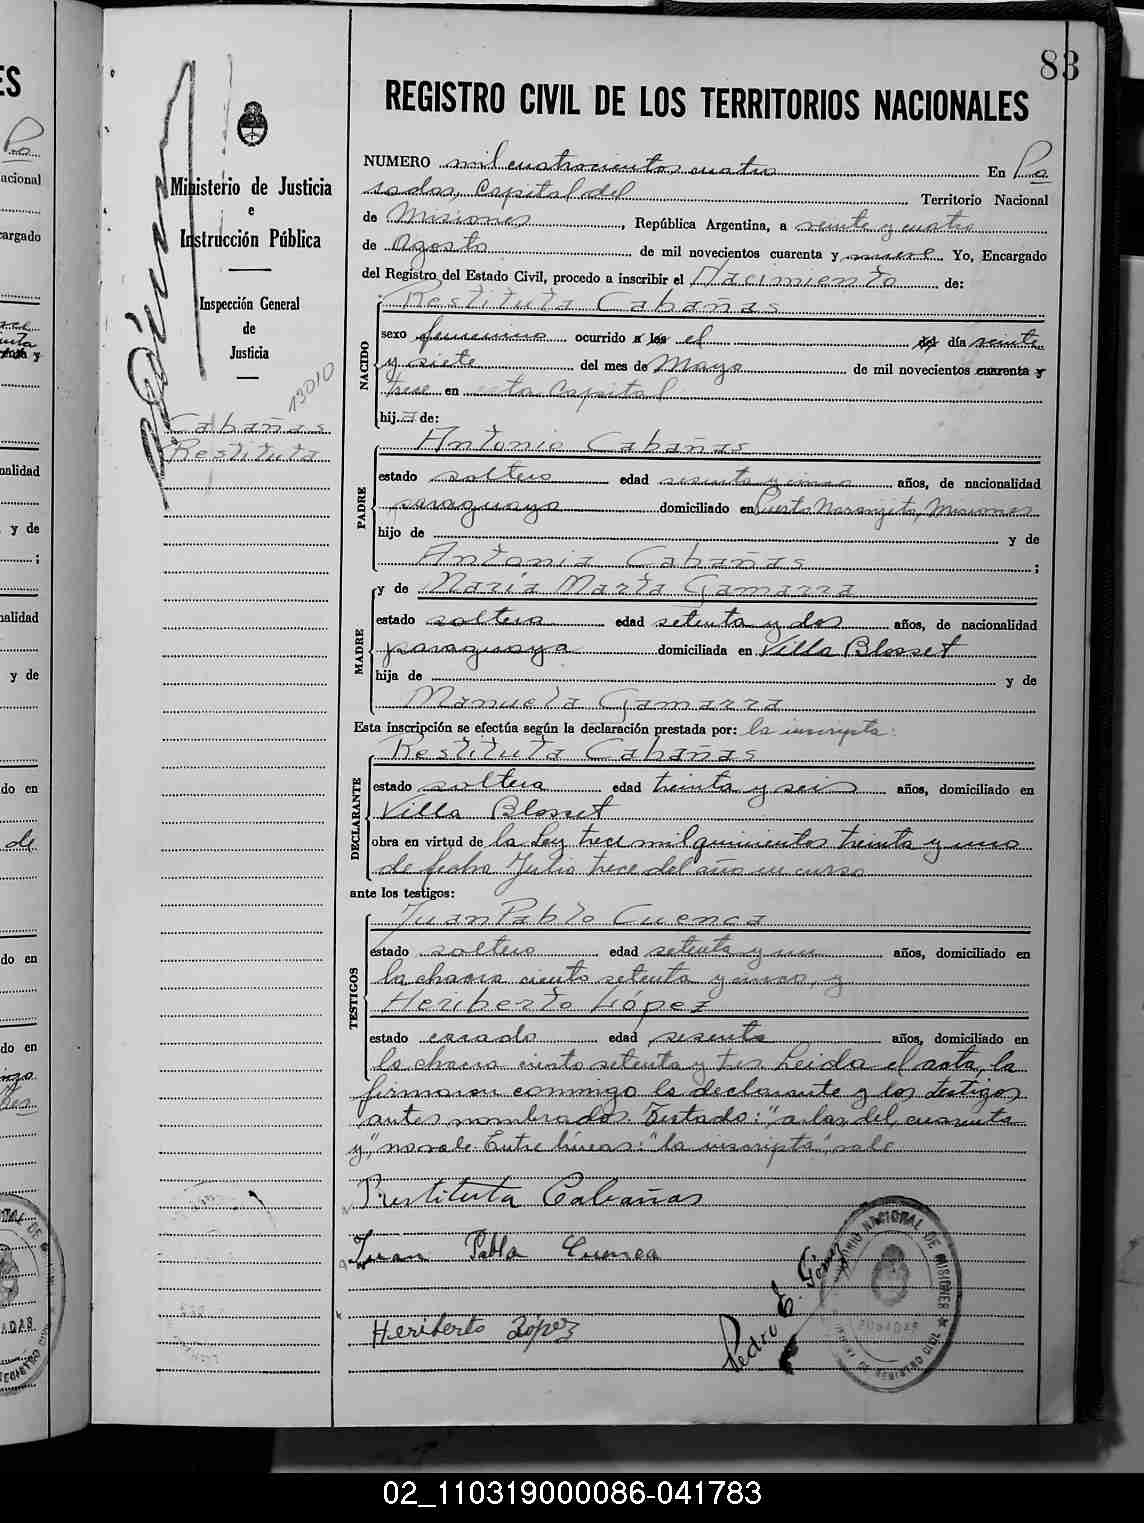 83
REGISTRO CIVIL DE LOS TERRITORIOS NACIONALES
Ministerio de Justicia
e
Instrucción Pública
Inspección General
de
Justicia
13010
Cabañas
Restituta
NUMERO mil cuatrocientos cuatro En Po
sadas, Capital del Territorio Nacional
de Misiones, República Argentina, a veinte y cuatro
de Agosto de mil novecientos cuarenta y nueve Yo, Encargado
del Registro del Estado Civil, procedo a inscribir el Nacimiento de:
NACIDO
Restituta Cabañas
sexo femenino ocurrido a las el del día veinte
y siete del mes de Mayo de mil novecientos cuarenta y
trece en esta Capital
hija de:
PADRE
Antonio Cabañas
estado soltero edad sesenta y cinco años, de nacionalidad
paraguayo domiciliado en Puerto Naranjito, Misiones
hijo de y de
Antonia Cabañas ;
MADRE
y de María Marta Gamarra
estado soltera edad setenta y dos años, de nacionalidad
paraguaya domiciliada en Villa Blosset
hija de y de
Manuela Gamarra
Esta inscripción se efectúa según la declaración prestada por: la inscripta:
DECLARANTE
Restituta Cabañas
estado soltera edad treinta y seis años, domiciliado en
Villa Blosset
obra en virtud de la Ley trece mil quinientos treinta y uno
de fecha Julio trece del año en curso
ante los testigos:
TESTIGOS
Juan Pablo Cuenca
estado soltero edad setenta y un años, domiciliado en
la chacra ciento setenta y cinco, y
Heriberto López
estado casado edad sesenta años, domiciliado en
la chacra ciento setenta y tres. Leida el acta, la
firmaron conmigo la declarante y los testigos
antes nombrados. Testado: "a las, del, cuarenta
y", no vale. Entre líneas: "la inscripta", vale
Restituta Cabañas
Juan Pablo Cuenca
Heriberto Lopez
Pedro E. Gómez
NACIONAL DE MISIONES
POSADAS
REGISTRO CIVIL
02_110319000086-041783